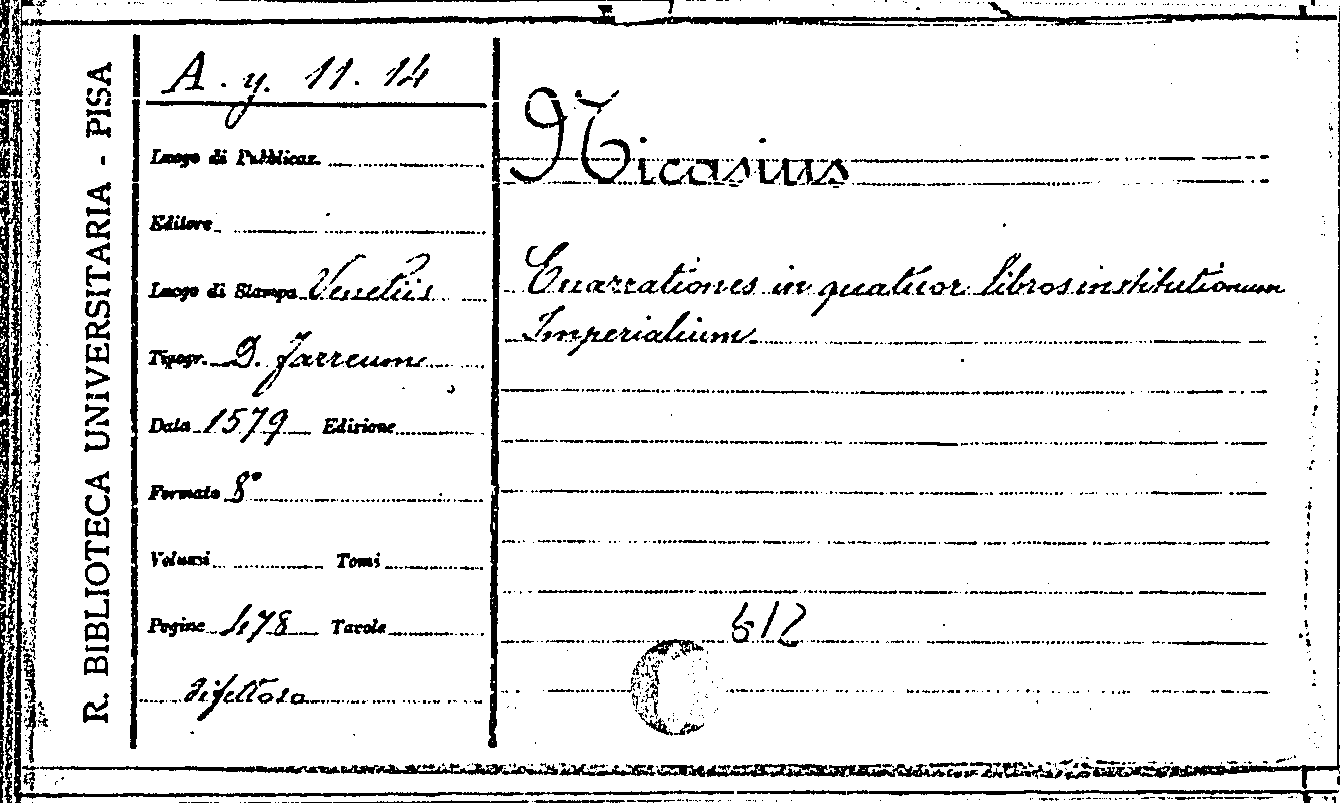 R. BIBLIOTECA UNIVERSITARIA - PISA
A. y. 11. 14
Luogo di Pubblicaz.
Editore
Luogo di Stampa Venetiis
Tipogr. D. Farreum
Data 1579 Edizione
Formato 8°
Volumi Tomi
Pagine 478 Tavole
difettoso
Nicasius
Enarrationes in quatuor libros institutionum
Imperialium.
612